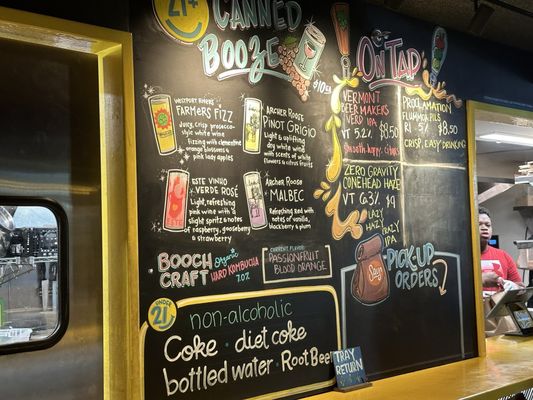 21+
CANNED
BOOZE
$10 ea
WESTPORT RIVERS
FARMERS FIZZ
Juicy, crisp prosecco-
style white wine
fizzing with clementine,
orange blossoms &
pink lady apples
ARCHER ROOSE
PINOT GRIGIO
Light & uplifting
dry white wine
with scents of white
flowers & citrus
ESTE VINHO
VERDE ROSÉ
Light, refreshing
pink wine with a
slight spritz & notes of
raspberry, gooseberry
& strawberry
ARCHER ROOSE
MALBEC
Refreshing red
with notes of vanilla,
blackberry & violet
BOOCH
CRAFT
organic
HARD KOMBUCHA
7.0%
CURRENT FLAVOR:
PASSIONFRUIT
BLOOD ORANGE
UNDER
21
non-alcoholic
Coke • diet coke
bottled water • Root Beer
ON TAP
VERMONT
BEER MAKERS
VERD IPA
VT 5.2% $8.50
Smooth, hoppy, citrus
ZERO GRAVITY
CONEHEAD HAZE
VT 6.3% $9
HAZY
IPA
PROCLAMATION
FLUMMOX PILS
RI 5% $8.50
CRISP, EASY DRINKING
PICK-UP
ORDERS
TRAY
RETURN